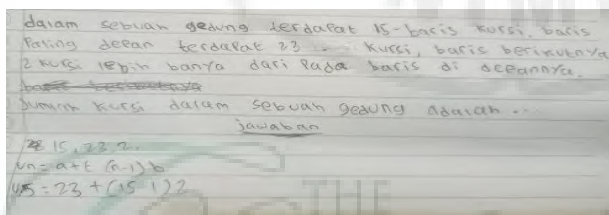 dalam sebuah gedung terdapat 15-baris kursi. baris
Paling depan terdapat 23 ... kursi, baris berikutnya
2 kursi lebih banya dari Pada baris di depannya.
Jumlah kursi dalam sebuah gedung adalah ...
jawaban
15, 23, 2.
Un = a + (n-1) b
U15 = 23 + (15 1) 2
THE